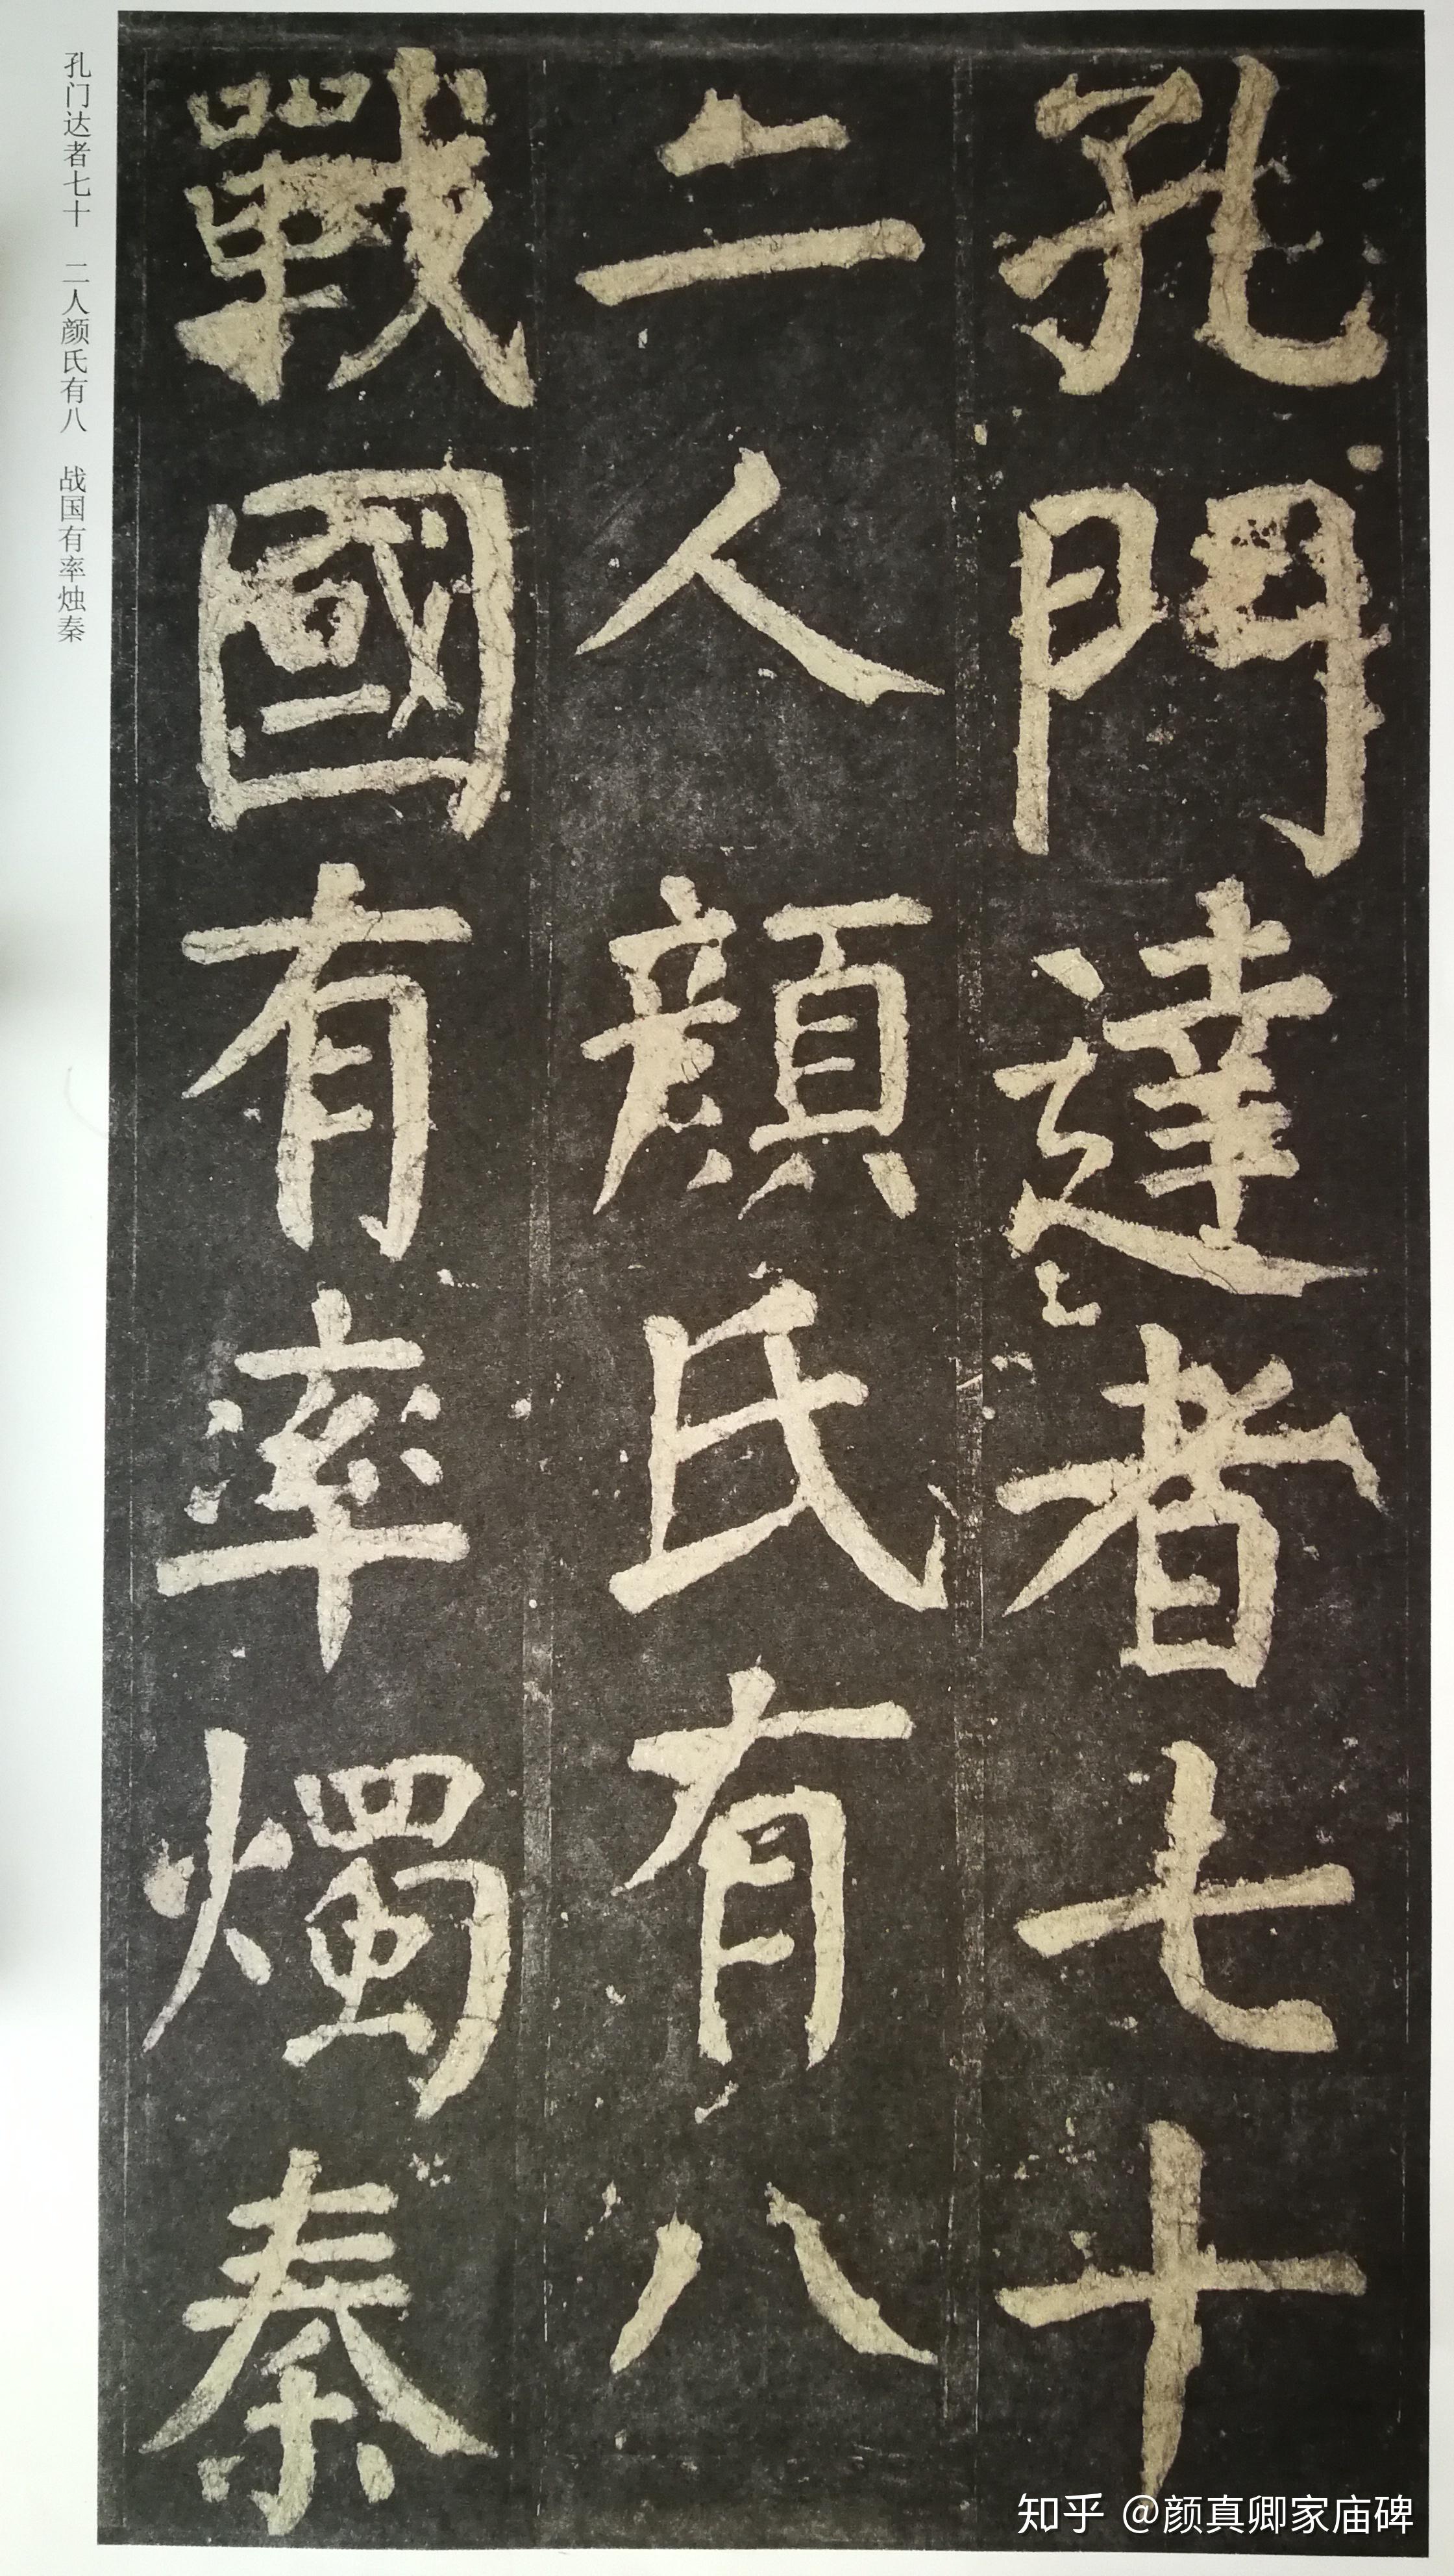 孔門達者七十
二人顔氏有八
戰國有率燭秦
孔门达者七十 二人颜氏有八 战国有率烛秦
知乎 @颜真卿家庙碑